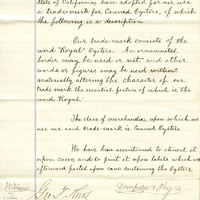 State of California have adopted for our use
a trade-mark for Canned Oysters, of which
the following is a description
Our trade-mark consists of the
word "Royal" Oysters. An ornamental
border may be used or not - and other
words or figures may be used without
materially altering the character of our
trade mark the essential feature of which is the
word "Royal"
The class of merchandise upon which we
use our said trade mark is Canned Oysters
We have been accustomed to stencil it
upon cases and to print it upon labels which are
afterward pasted upon cans containing the Oysters
Witnesses
Dempster & Keys